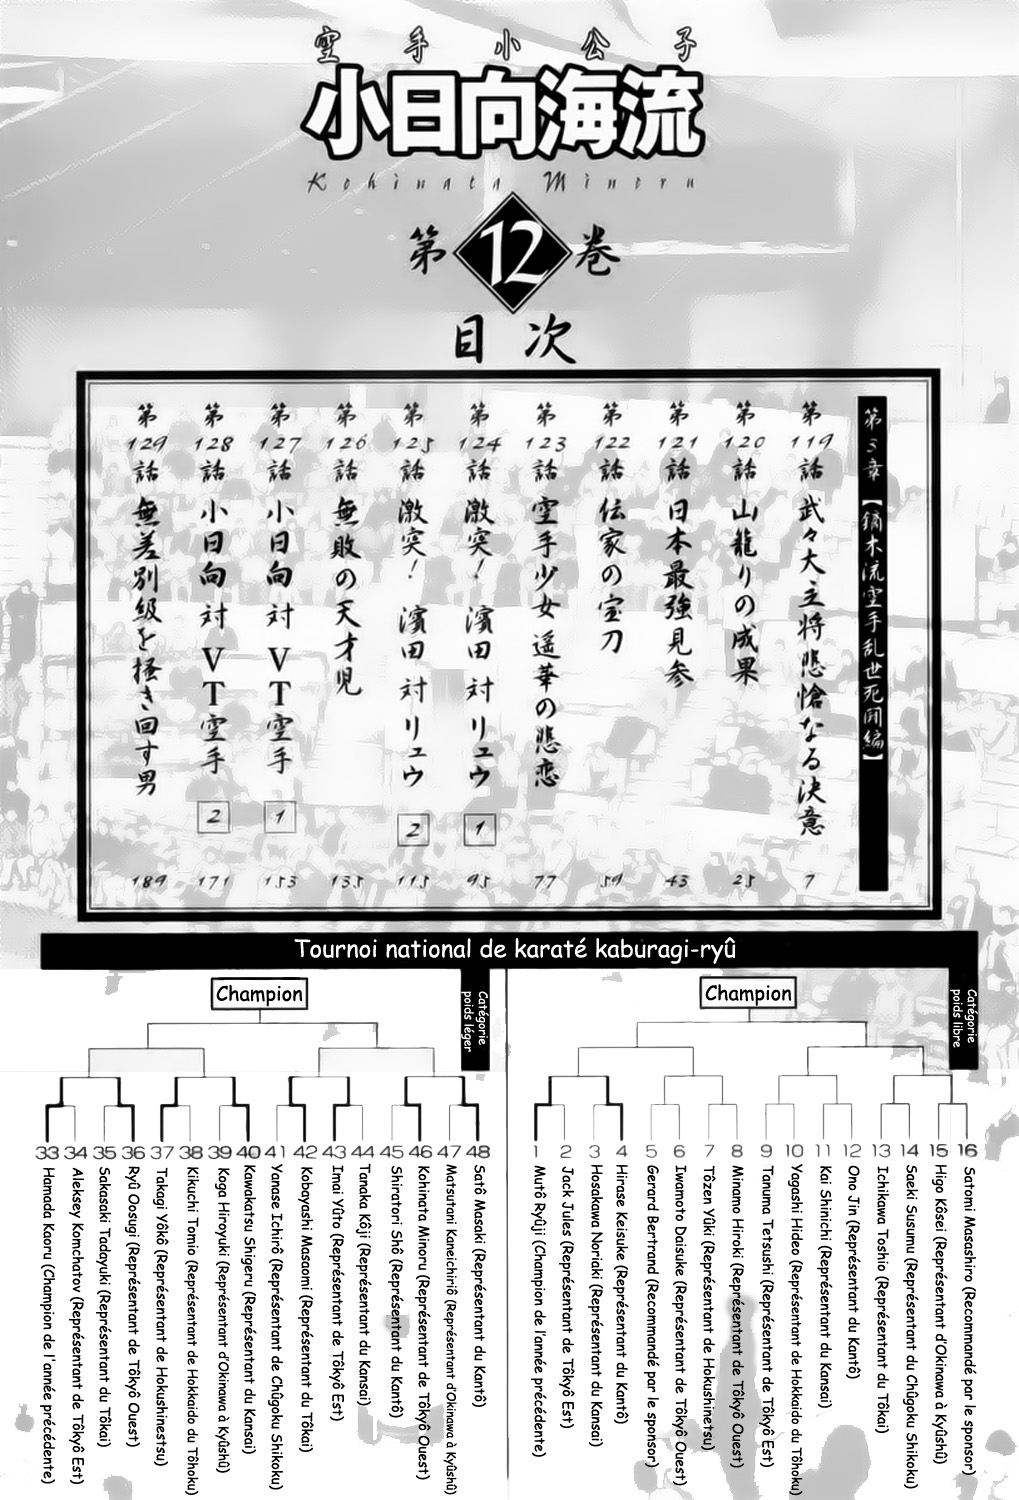 空手小公子
小日向海流
Kohinata Minoru
第12巻
目次
第3章【鏑木流空手乱世死闘編】
第119話 武々大主将悲愴なる決意 7
第120話 山籠りの成果 25
第121話 日本最強見参 43
第122話 伝家の宝刀 59
第123話 空手少女遥華の悲恋 77
第124話 激突! 濱田対リュウ 1 95
第125話 激突! 濱田対リュウ 2 115
第126話 無敗の天才児 135
第127話 小日向対VT空手 1 153
第128話 小日向対VT空手 2 171
第129話 無差別級を掻き回す男 189
Tournoi national de karaté kaburagi-ryû
Catégorie
poids léger
Champion
33 Hamada Kaoru (Champion de l'année précédente)
34 Aleksey Komchatov (Représentant de Tôkyô Est)
35 Sakasaki Tadayuki (Représentant du Tôkai)
36 Ryû Oosugi (Représentant de Tôkyô Ouest)
37 Takagi Yôkô (Représentant de Hokushinestsu)
38 Kikuchi Tomio (Représentant de Hokkaido du Tôhoku)
39 Koga Hiroyuki (Représentant d'Okinawa à Kyûshû)
40 Kawakatsu Shigeru (Représentant du Kansai)
41 Yanase Ichirô (Représentant de Chûgoku Shikoku)
42 Kobayashi Masaomi (Représentant du Tôkai)
43 Imai Yûto (Représentant de Tôkyô Est)
44 Tanaka Kôji (Représentant du Kansai)
45 Shiratori Shô (Représentant du Kantô)
46 Kohinata Minoru (Représentant de Tôkyô Ouest)
47 Matsutani Kaneichiriô (Représentant d'Okinawa à Kyûshû)
48 Satô Masaki (Représentant du Kantô)
Catégorie
poids libre
Champion
1 Mutô Ryûji (Champion de l'année précédente)
2 Jack Jules (Représentant de Tôkyô Est)
3 Hosakawa Noriaki (Représentant du Kansai)
4 Hirase Keisuke (Représentant du Kantô)
5 Gerard Bertrand (Recommandé par le sponsor)
6 Iwamoto Daisuke (Représentant de Tôkyô Ouest)
7 Tôzen Yûki (Représentant de Hokushinetsu)
8 Minamo Hiroki (Représentant de Tôkyô Ouest)
9 Tanuma Tetsushi (Représentant de Tôkyô Est)
10 Yagashi Hideo (Représentant de Hokkaido du Tôhoku)
11 Kai Shinichi (Représentant du Kansai)
12 Ono Jin (Représentant du Kantô)
13 Ichikawa Toshio (Représentant du Tôkai)
14 Saeki Susumu (Représentant du Chûgoku Shikoku)
15 Higo Kôsei (Représentant d'Okinawa à Kyûshû)
16 Satomi Masashiro (Recommandé par le sponsor)